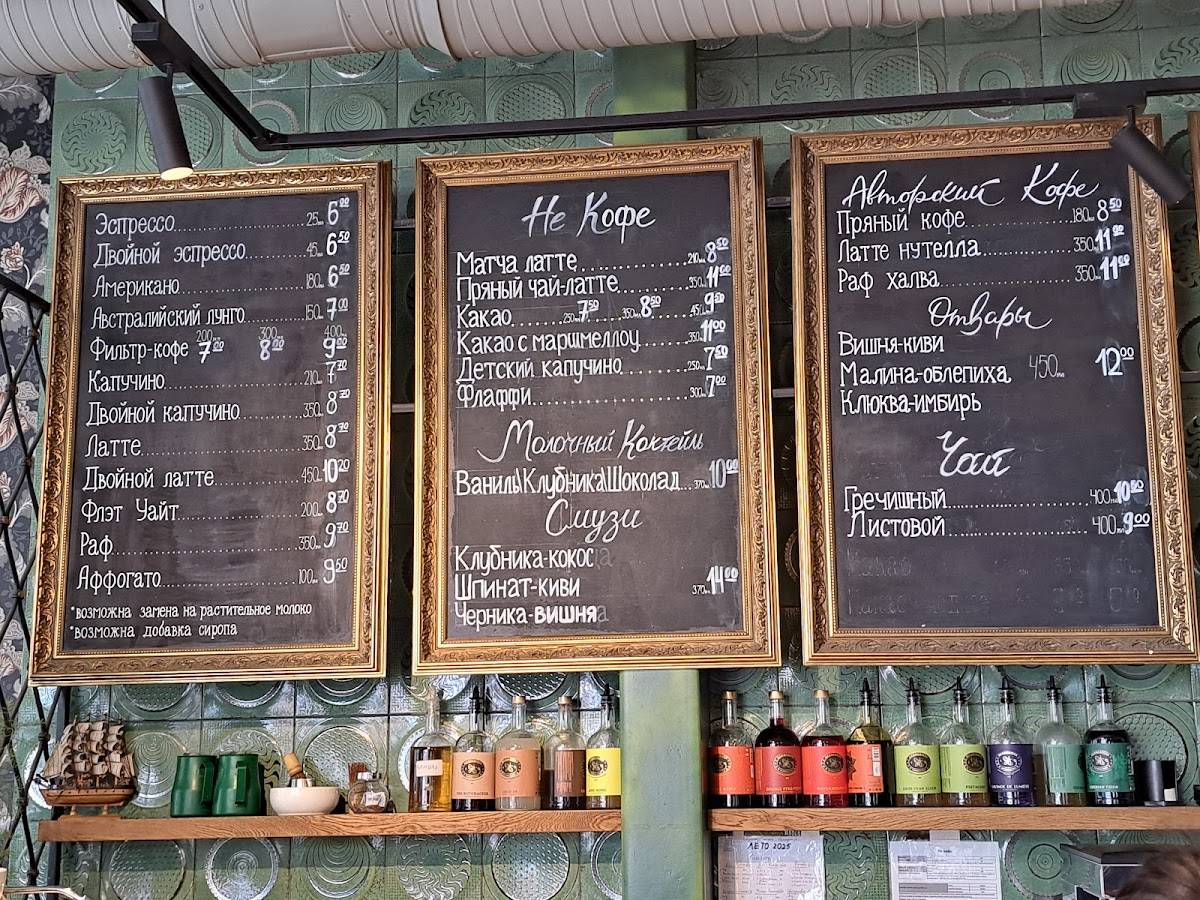 Эспрессо 25мл 6⁰⁰
Двойной эспрессо 45мл 6⁵⁰
Американо 180мл 6⁵⁰
Австралийский лунго 150мл 7⁰⁰
200мл 300мл 400мл
Фильтр-кофе 7⁰⁰ 8⁰⁰ 9⁰⁰
Капучино 210мл 7⁷⁰
Двойной капучино 350мл 8⁷⁰
Латте 350мл 8⁷⁰
Двойной латте 450мл 10²⁰
Флэт Уайт 200мл 8⁷⁰
Раф 350мл 9⁷⁰
Аффогато 100мл 9⁵⁰
*возможна замена на растительное молоко
*возможна добавка сиропа
Не Кофе
Матча латте 210мл 8⁵⁰
Пряный чай-латте 350мл 11⁰⁰
Какао 250мл 7⁵⁰ 350мл 8⁵⁰ 450мл 9⁵⁰
Какао с маршмеллоу 350мл 11⁰⁰
Детский капучино 250мл 7⁵⁰
Флаффи 300мл 7⁰⁰
Молочный Коктейль
Ваниль\Клубника\Шоколад 370мл 10⁰⁰
Смузи
Клубника-кокос
Шпинат-киви 370мл 14⁰⁰
Черника-вишня
Авторский Кофе
Пряный кофе 180мл 8⁵⁰
Латте нутелла 350мл 11⁰⁰
Раф халва 350мл 11⁰⁰
Отвары
Вишня-киви
Малина-облепиха 450мл 12⁰⁰
Клюква-имбирь
Чай
Гречишный 400мл 10⁰⁰
Листовой 400мл 9⁰⁰
ЛЕТО 2025